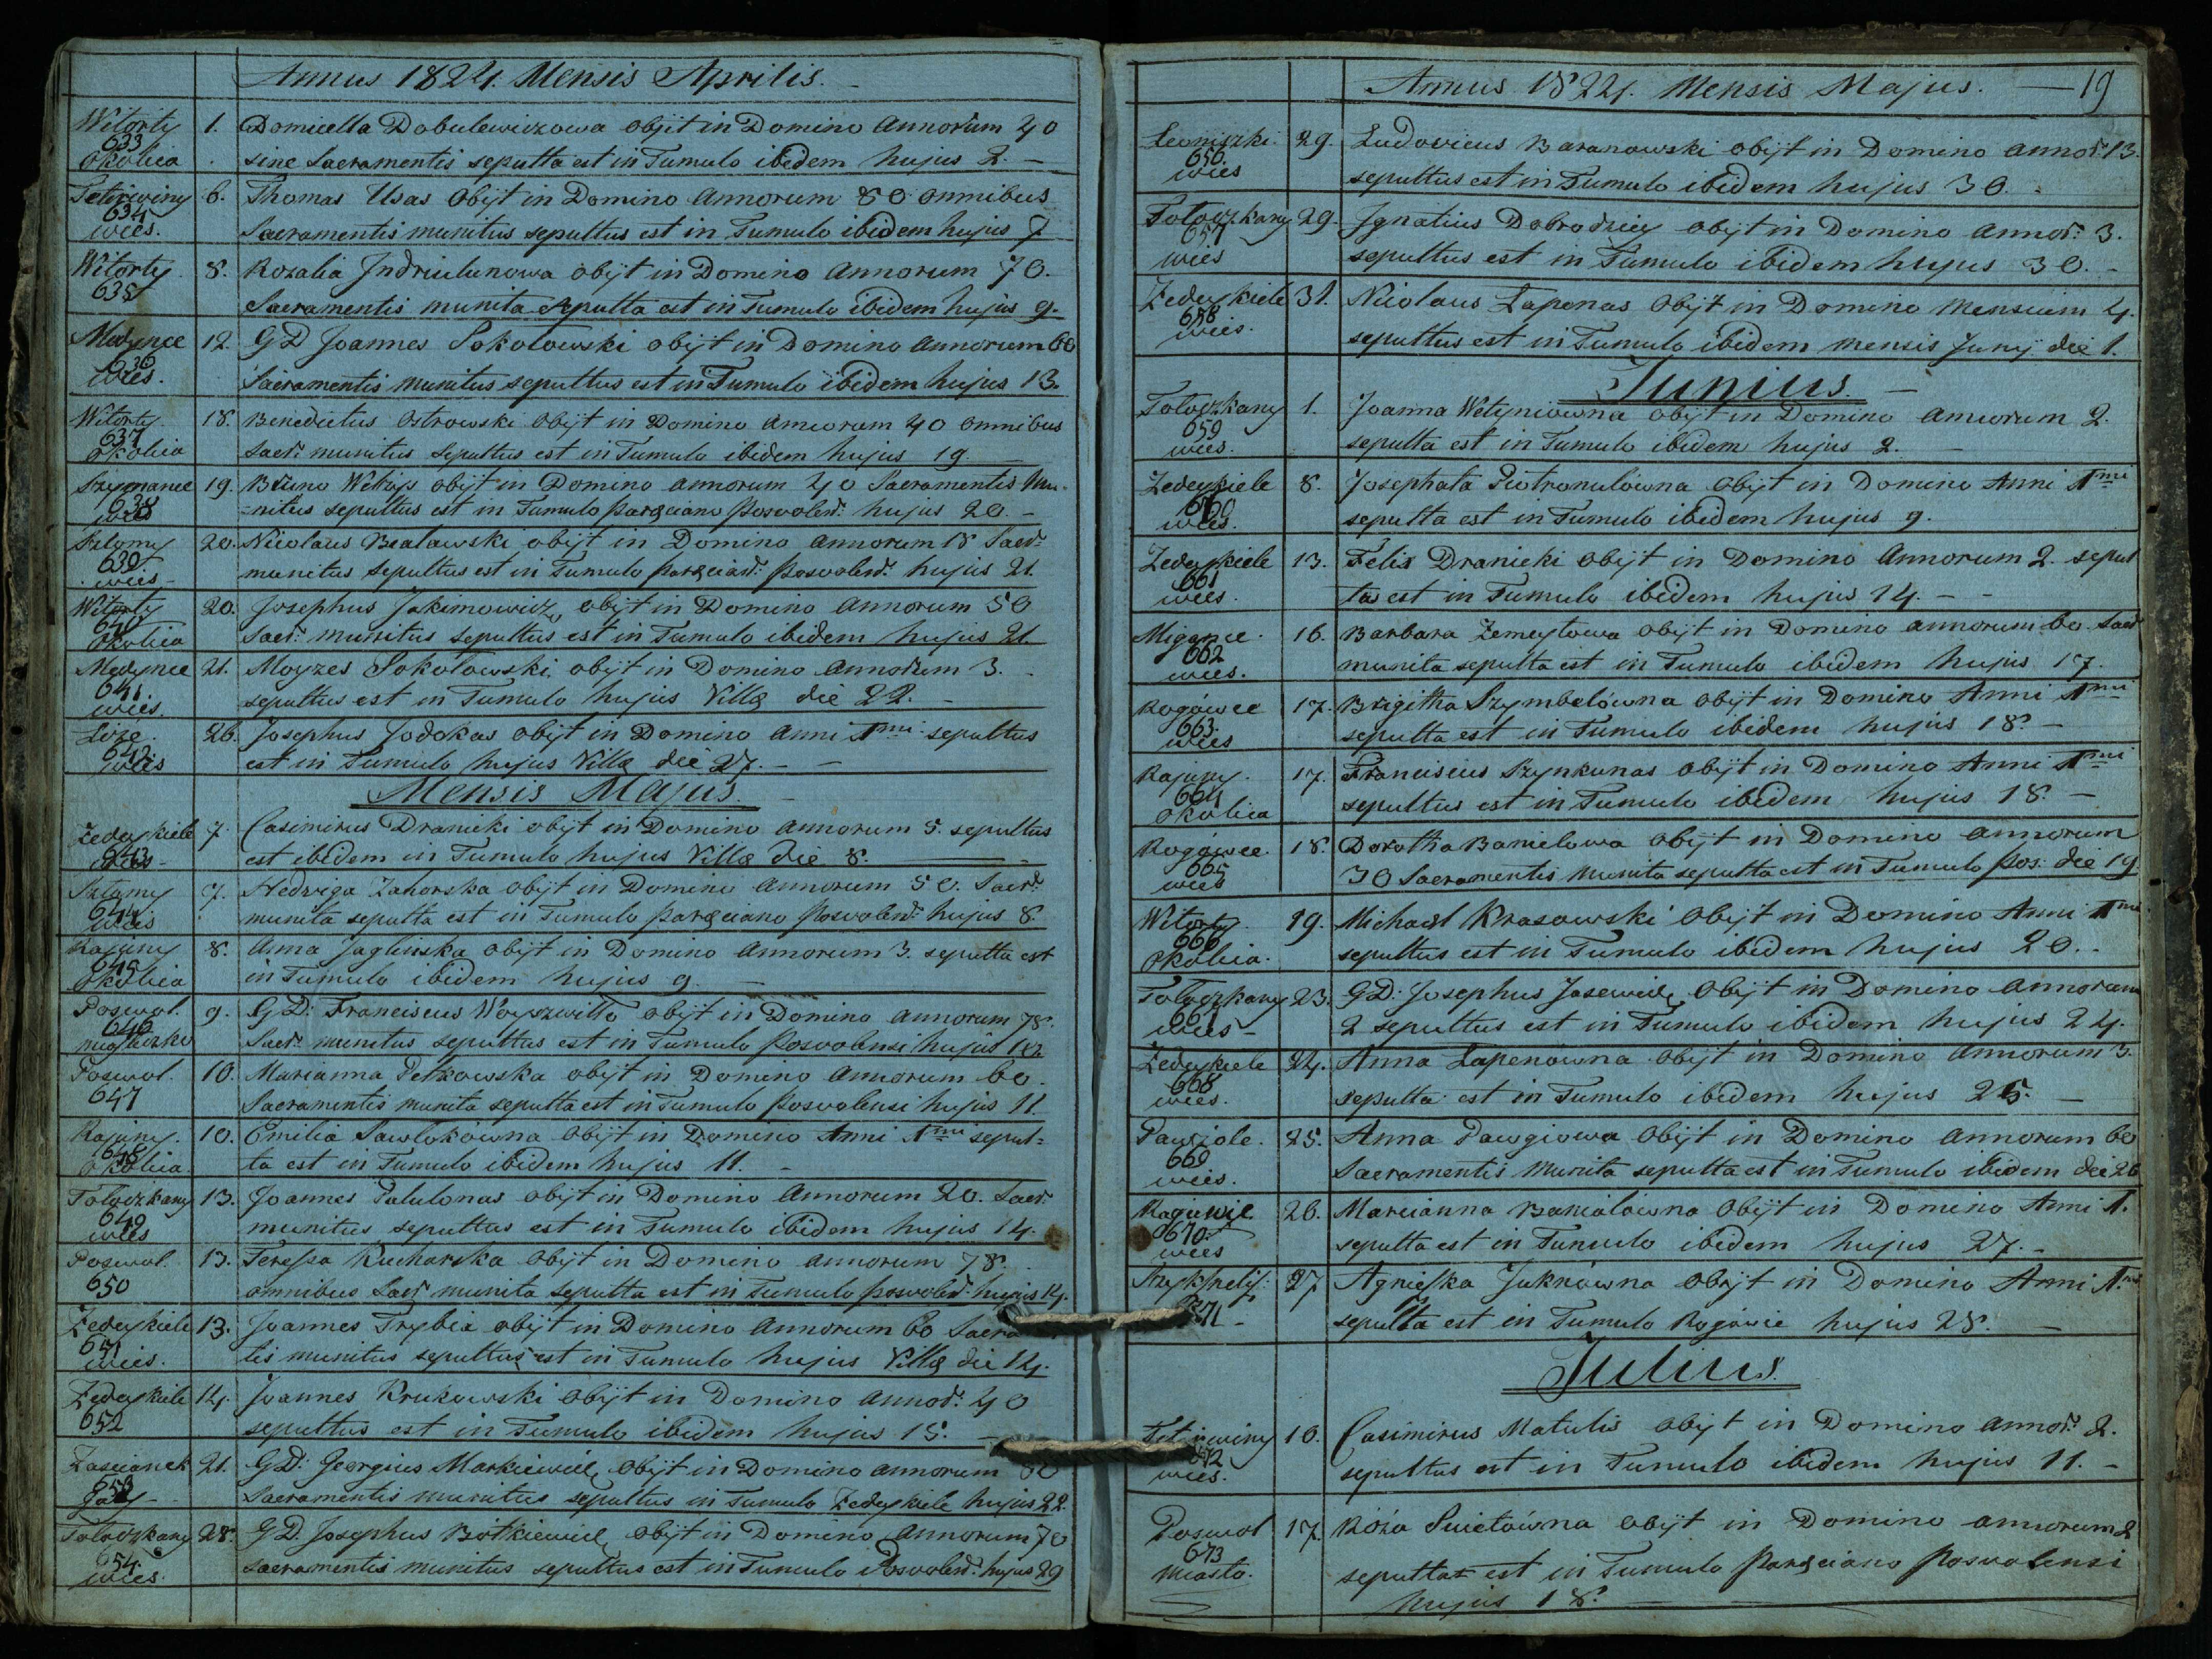 Annus 1824. Mensis Aprilis.
Witorty 633 okolica 1. Domicella Dobulewiczowa obijt in Domino Annorum 40
sine Sacramentis sepulta est in Tumulo ibidem hujus 2.
Tetiriviny 634 wies. 6. Thomas Usas Obijt in Domino Annorum 80 omnibus
Sacramentis munitus sepultus est in Tumulo ibidem hujus 7
Witorty 635 8. Rozalia Jndriulunowa obijt in Domino Annorum 70.
Sacramentis munita sepulta est in Tumulo ibidem hujus 9.
Medynce 636 wies. 12. GD Joannes Sokołowski obijt in Domino Annorum 60
Sacramentis munitus sepultus est in Tumulo ibidem hujus 13.
Witorty 637 okolica 18. Benedictus Ostrowski obijt in Domino Annorum 40 omnibus
Sacr: munitus sepultus est in Tumulo ibidem hujus 19.
638 wies 19. Bruno obijt in Domino annorum 40 Sacramentis mu-
=nitus sepultus est in Tumulo paręciano posvolen: hujus 20.
639. wies 20. Nicolaus Bealawski obijt in Domino Annorum 18 Sacr:
munitus sepultus est in Tumulo paręcian: posvolen: hujus 21.
Witorty 640 okolica 20. Josephus Jakimowicz obijt in Domino Annorum 50
Sacr: munitus sepultus est in Tumulo ibidem hujus 21.
Medynce 641. wies. 21. Moyzes Sokołowski obijt in Domino Annorum 3.
sepultus est in Tumulo hujus Villę die 22.
642. wies 26. Josephus Jodokas obijt in Domino Anni 1mi sepultus
est in Tumulo hujus Villę die 27.
Mensis Majus.
Zedeykiele 643 wies 7. Casimirus Dranicki obijt in Domino Annorum 5. sepultus
est ibidem in Tumulo hujus Villę Die 8.
644 wies 7. Hedviga Zahorska obijt in Domino Annorum 50. Sacr:
munita sepulta est in Tumulo paręciano Posvolen: hujus 8.
Rajuny 645 okolica 8. Anna Jaglinska obijt in Domino Annorum 3. sepulta est
in Tumulo ibidem hujus 9.
Poswol. 646 miasteczko 9. GD: Franciscus Woyszwiłło obijt in Domino annorum 78.
Sacr: munitus sepultus est in Tumulo Posvolensi hujus 10
Poswol. 647 10. Marianna Petkowska obijt in Domino Annorum 60.
Sacramentis munita sepulta est in Tumulo Posvolensi hujus 11.
Rajuny. 648 okolica 10. Emilia Sawlokówna obijt in Domino Anni 1mi sepul=
ta est in Tumulo ibidem hujus 11.
Tołoczkany 649 wies 13. Joannes Palulonas obijt in Domino Annorum 20. Sacr:
munitus sepultus est in Tumulo ibidem hujus 14.
Poswol. 650 13. Teressa Kucharska obijt in Domino annorum 78.
omnibus Sacr: munita sepulta est in Tumulo posvolen: hujus 14.
Zedeykiele 651 wies. 13. Joannes Trybia obijt in Domino Annorum 60 Sacra
tis munitus sepultus est in Tumulo hujus Villę die 14.
Zedeykiele 652 14. Joannes Krukowski obijt in Domino annor: 40
sepultus est in Tumulo ibidem hujus 15.
Zascianek 653 21. GD: Georgius Markiewicz obijt in Domino annorum
Sacramentis munitus sepultus in Tumulo Zedeykiele hujus 22.
Tołoczkany 654. wies. 28. GD. Josephus Botkiewicz obijt in Domino Annorum 70
Sacramentis munitus sepultus est in Tumulo Posvolen: hujus 29
Annus 1824. Mensis Majus. 19
Leoniszki 656. wies 29. Ludovicus Baranowski obijt in Domino annor: 13.
sepultus est in Tumulo ibidem hujus 30.
Tołoczkany 657 wies 29. Jgnatius Dobrodziey obijt in Domino Annor: 3.
sepultus est in Tumulo ibidem hujus 30.
Zedeykiele 658 wies. 31. Nicolaus Łapenas Obijt in Domino mensium 4.
sepultus est in Tumulo ibidem mensis Junij die 1.
Junius.
Tołoczkany 659 wies. 1. Joanna Wetyniówna obijt in Domino Annorum 2.
sepulta est in Tumulo ibidem hujus 2.
Zedeykiele 660 wies. 8. Josephata Piotronulówna obijt in Domino Anni 1mi
sepulta est in Tumulo ibidem hujus 9.
Zedeykiele 661 wies. 13. Felix Dranicki obijt in Domino Annorum 2. sepul
tus est in Tumulo ibidem hujus 14.
Migance. 662 wies. 16. Barbara Zemeytowa obijt in Domino annorum 60 Sacr
munita sepulta est in Tumulo ibidem hujus 17.
Rogówce 663. wies 17. Brigitha Szymbelówna obijt in Domino Anni 1mi
sepulta est in Tumulo ibidem hujus 18.
Rajuny. 664 okolica 17. Franciscus Szynkunas obijt in Domino Anni 1mi
sepultus est in Tumulo ibidem hujus 18.
Rogówce. 665 wies 18. Dorotha Banielowa obijt in Domino annorum
30 Sacramentis munita sepulta est in Tumulo Pos: die 19
Witorty. 666 okolica. 19. Michael Krasowski obijt in Domino Anni 1mi
sepultus est in Tumulo ibidem hujus 20.
Tołoczkany 667 wies 23. GD: Josephus Jasewicz obijt in Domino Annorum
2 sepultus est in Tumulo ibidem hujus 24.
Zedeykiele 668 wies. 24. Anna Łapenówna obijt in Domino Annorum 3.
sepulta est in Tumulo ibidem hujus 25.
669 wies. 25. Anna Pawgiowa obijt in Domino Annorum 60
Sacramentis munita sepulta est in Tumulo ibidem die 26
670. wies 26. Marcianna Banialówna obijt in Domino Anni 1.
sepulta est in Tumulo ibidem hujus 27.
671 27 Agnieszka Juknówna obijt in Domino Anni 1mi
sepulta est in Tumulo Rogówie hujus 28.
Julius.
672 wies. 10. Casimirus Matulis obijt in Domino annor: 2.
sepultus est in Tumulo ibidem hujus 11.
Poswol 673 miasto. 17. Róża Swietówna obijt in Domino annorum 2
sepulta est in Tumulo paręciano Posvolensi
hujus 18.